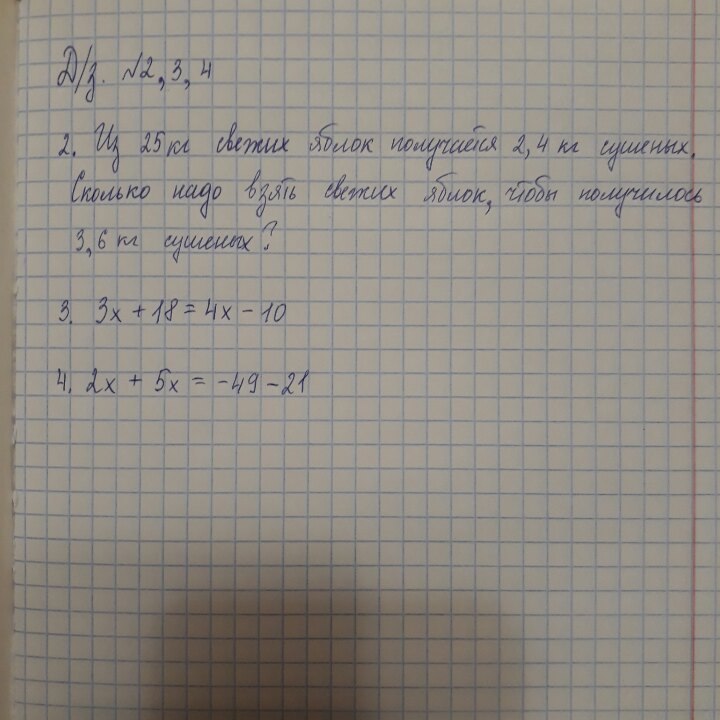 Д/з. №2, 3, 4
2. Из 25 кг свежих яблок получается 2,4 кг сушеных.
Сколько надо взять свежих яблок, чтобы получилось
3,6 кг сушеных?
3. 3x + 18 = 4x - 10
4. 2x + 5x = -49 - 21